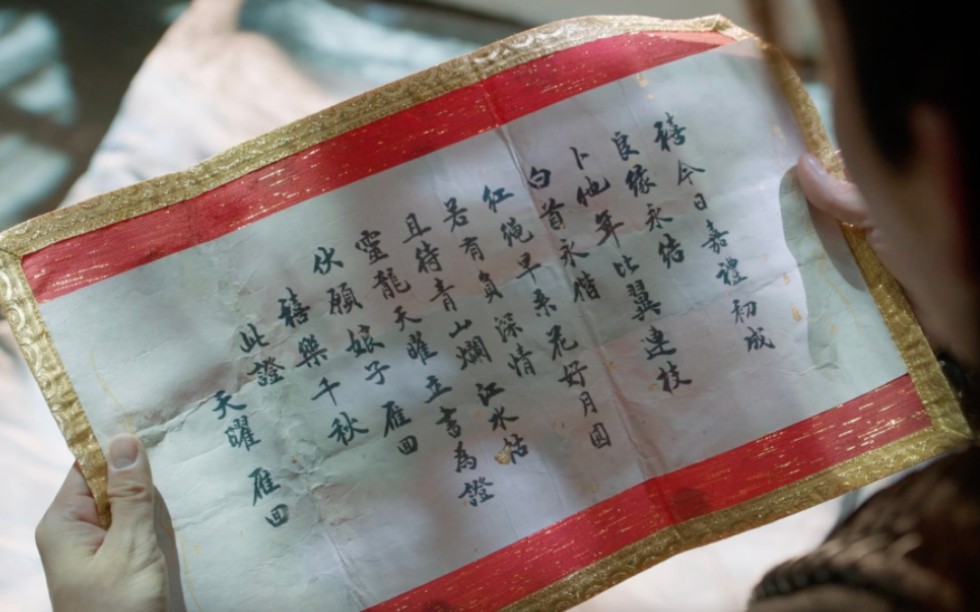 禧今日嘉禮初成
良缘永结
卜他年比翼連枝
白首永偕
红绳早系花好月圆
若有負深情
且待青山爛江水枯
靈龍天曜立書為證
伏願娘子雁回
禧樂千秋
此證
天曜 雁回